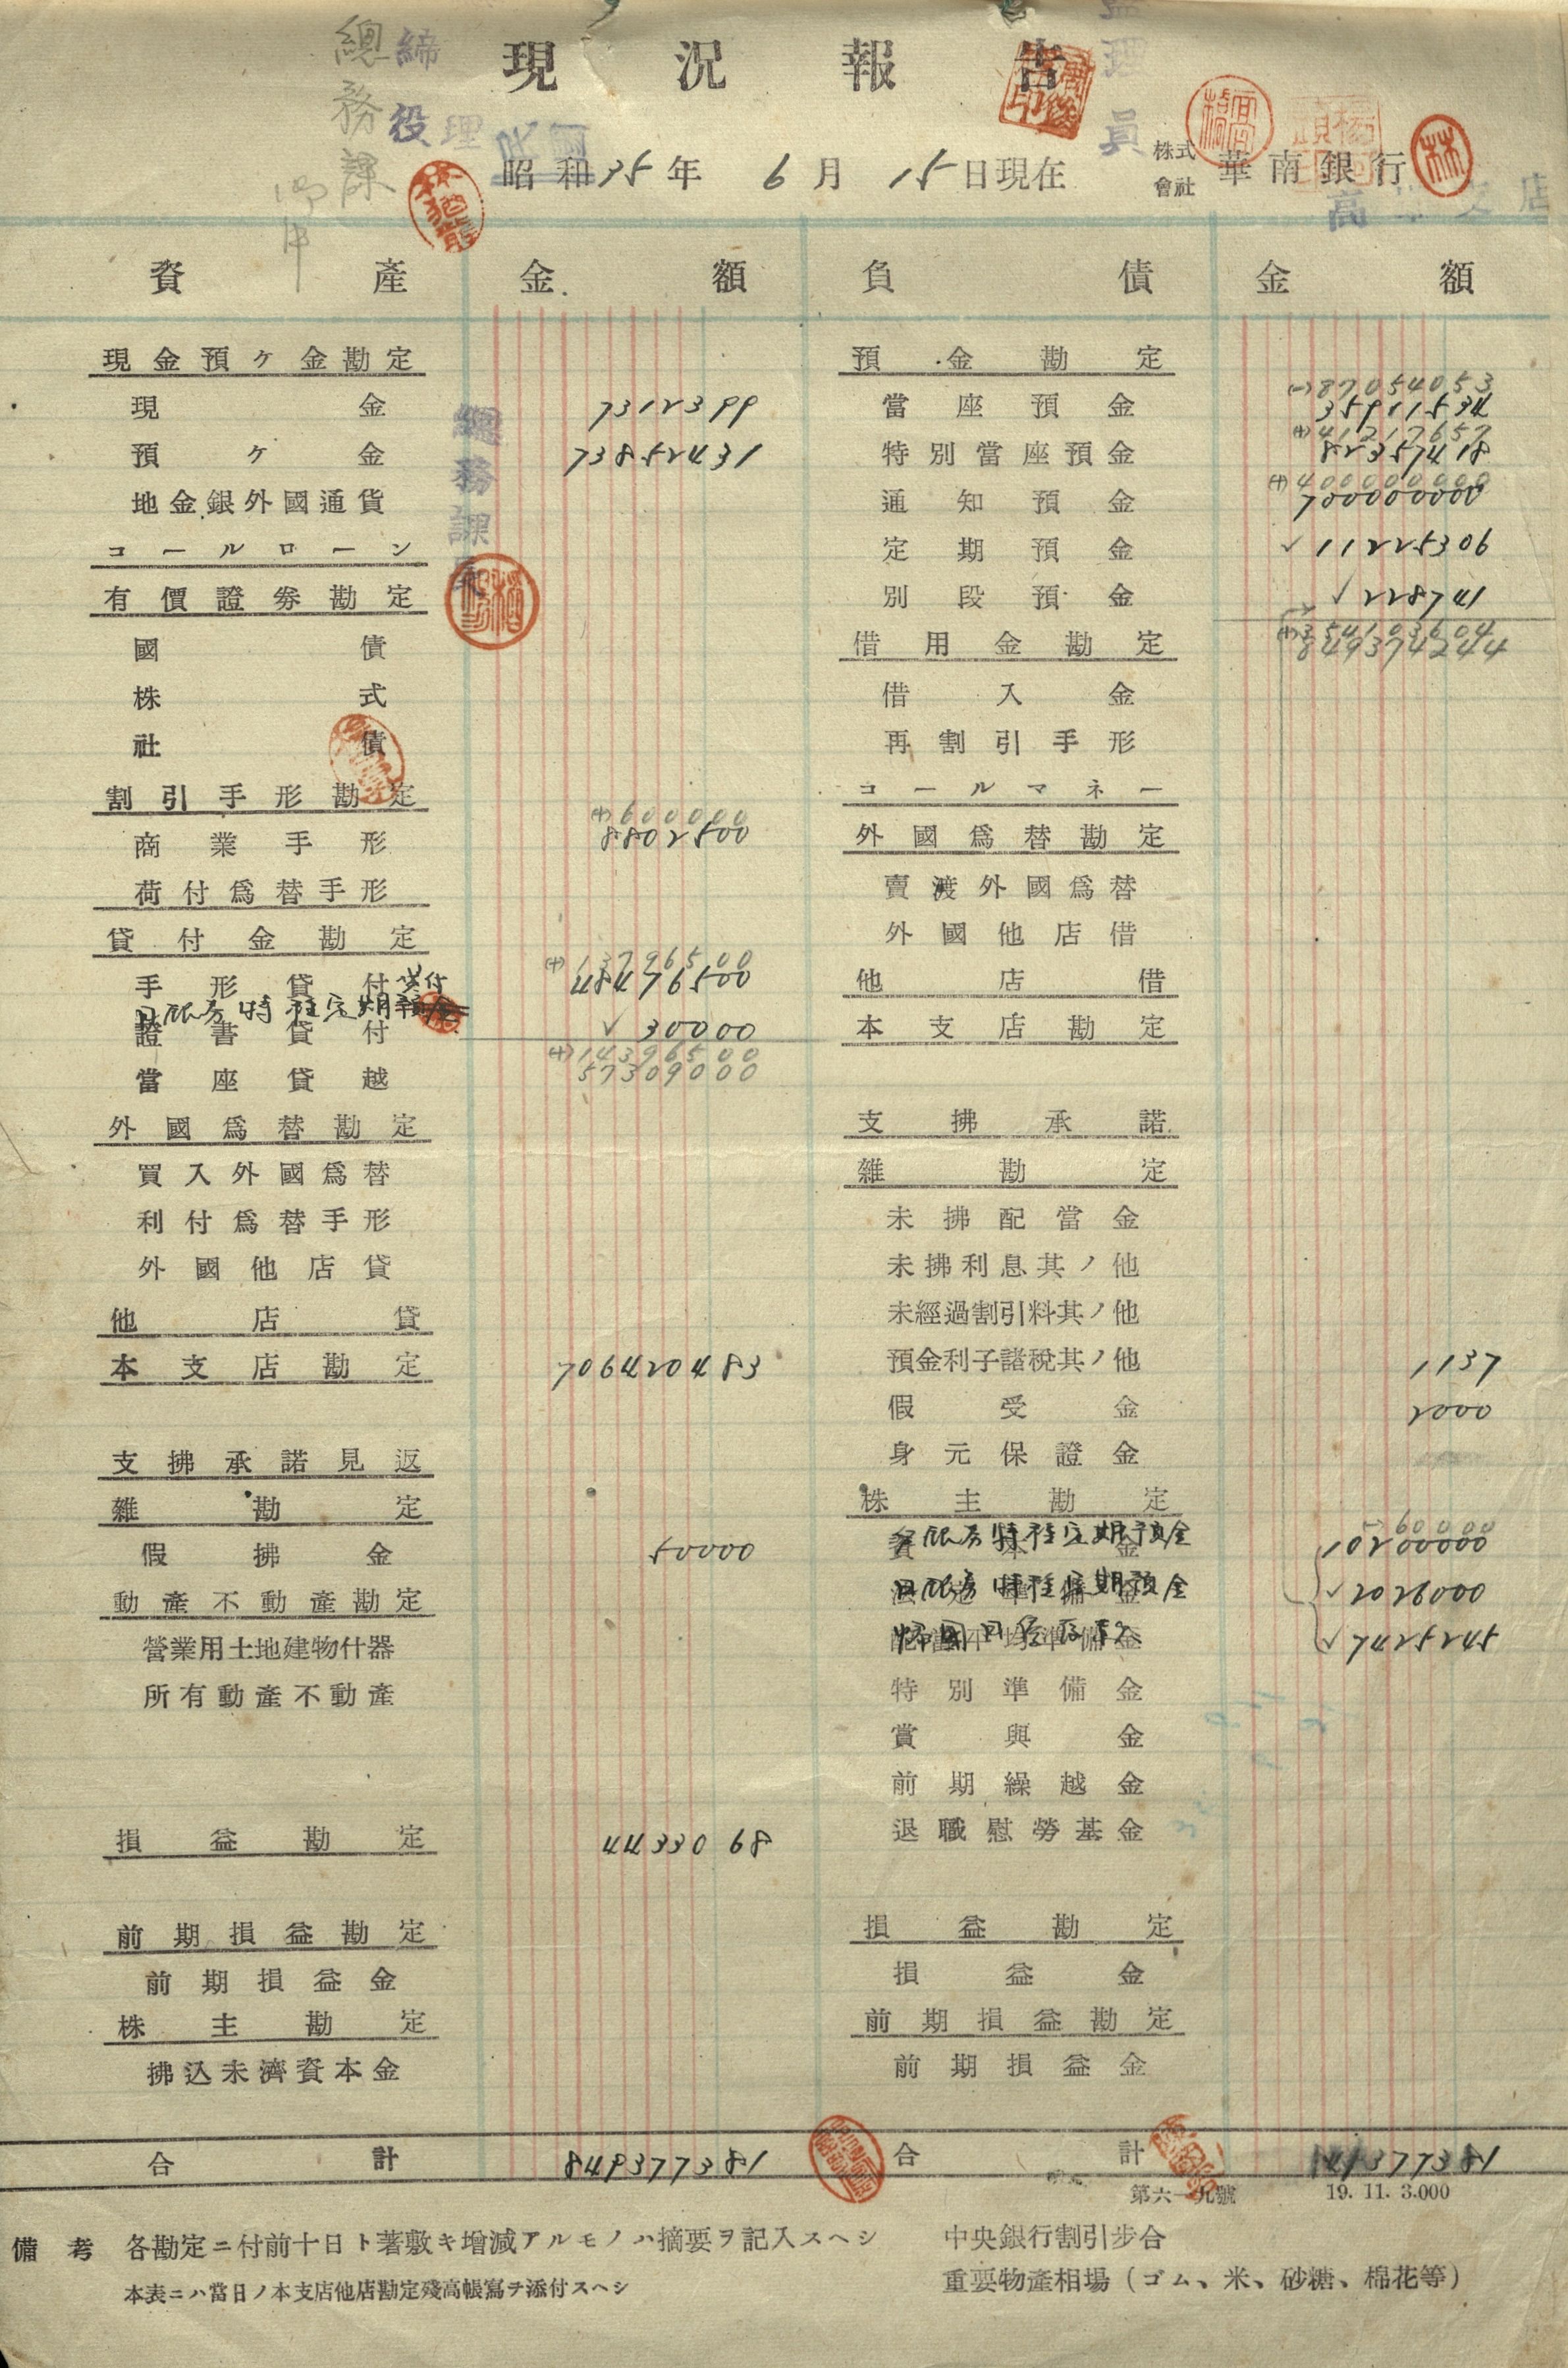 現況報告
昭和35年 6月 15日現在
株式會社 華南銀行
總務課
締役
理
理員
高 支店
林
資產 金額 負債 金額
現金預ヶ金勘定
現金 7312399
預ヶ金 73852431
地金銀外國通貨
コールローン
有價證券勘定
國債
株式
社債
割引手形勘定
(+)600000
商業手形 8802500
荷付爲替手形
貸付金勘定
(+)13796500
手形貸付 48476500
證書貸付 ✓30000
(+)14396500
當座貸越 57309000
外國爲替勘定
買入外國爲替
利付爲替手形
外國他店貸
他店貸
本支店勘定 706420483
支拂承諾見返
雜勘定
假拂金 50000
動產不動產勘定
營業用土地建物什器
所有動產不動產
損益勘定 4433068
前期損益勘定
前期損益金
株主勘定
拂込未濟資本金
合計 849377381
總務課
預金勘定
(-)87054053
當座預金 35911534
(+)41217657
特別當座預金 82357418
(+)400000000
通知預金 700000000
定期預金 ✓11225306
別段預金 ✓228741
借用金勘定
849374244
借入金
再割引手形
コールマネー
外國爲替勘定
賣渡外國爲替
外國他店借
他店借
本支店勘定
支拂承諾
雜勘定
未拂配當金
未拂利息其ノ他
未經過割引料其ノ他
預金利子諸稅其ノ他 1137
假受金 2000
身元保證金
株主勘定
特種定期預金
(-)60000
10200000
特種定期預金 ✓2026000
✓7425245
特別準備金
賞與金
前期繰越金
退職慰勞基金
損益勘定
損益金
前期損益勘定
前期損益金
合計 849377381
第六一九號 19. 11. 3.000
備考 各勘定ニ付前十日ト著敷キ增減アルモノハ摘要ヲ記入スヘシ
本表ニハ當日ノ本支店他店勘定殘高帳寫ヲ添付スヘシ
中央銀行割引步合
重要物產相場（ゴム、米、砂糖、棉花等）